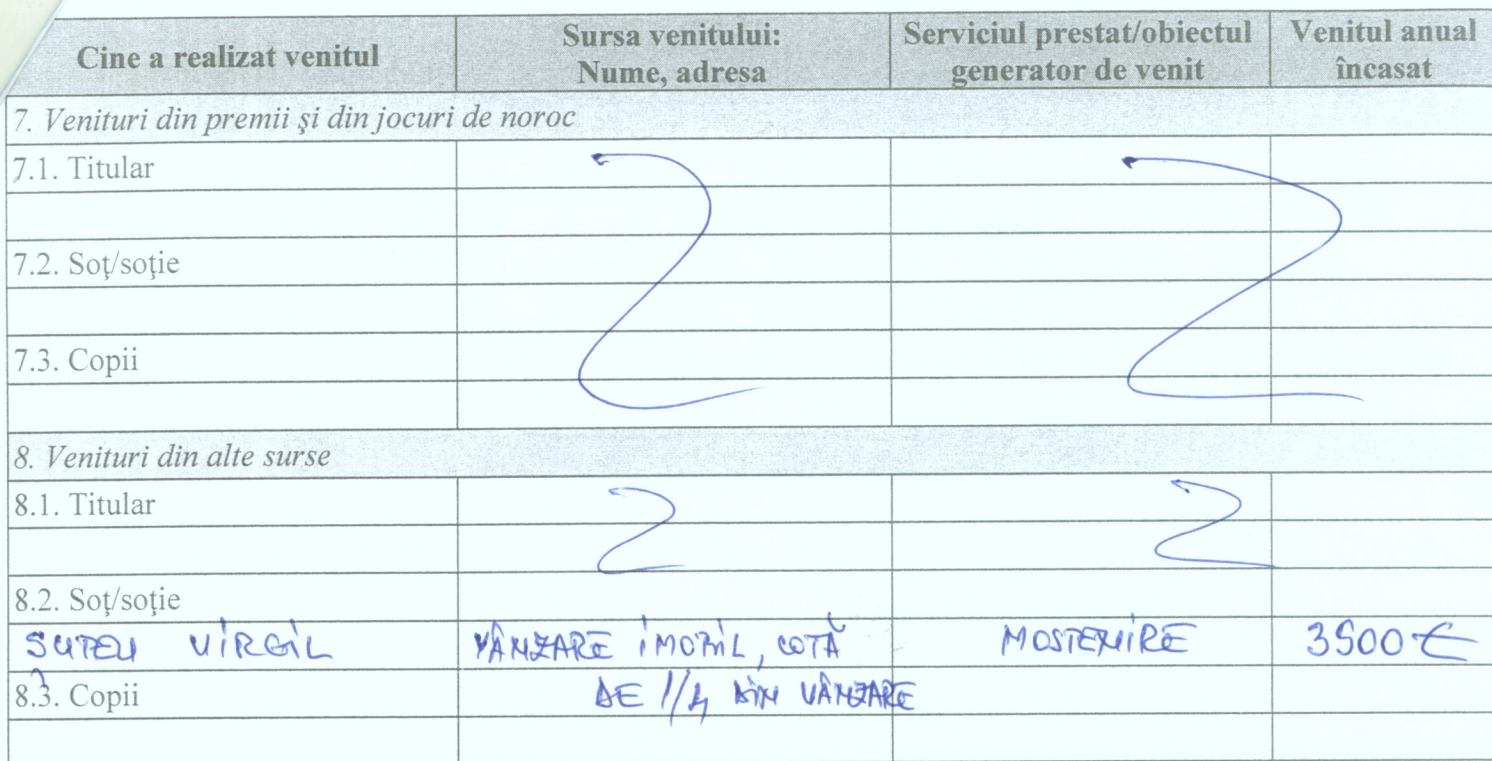 Cine a realizat venitul
Sursa venitului:
Nume, adresa
Serviciul prestat/obiectul
generator de venit
Venitul anual
încasat
7. Venituri din premii şi din jocuri de noroc
7.1. Titular
7.2. Soţ/soţie
7.3. Copii
8. Venituri din alte surse
8.1. Titular
8.2. Soţ/soţie
ŞUTEU VIRGIL VÂNZARE IMOBIL, COTĂ MOSTENIRE 3500 €
8.3. Copii DE 1/4 DIN VÂNZARE